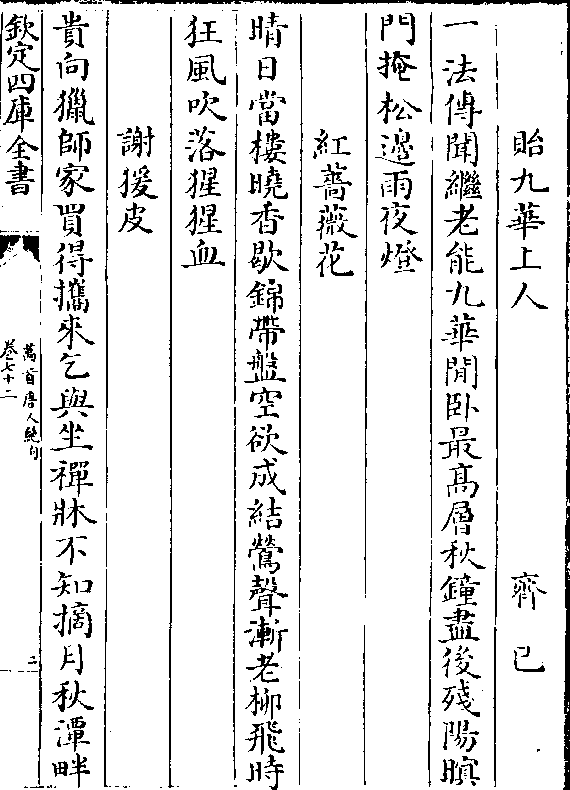 貽九華上人　齊已
一法傳聞繼老能九華閒卧最髙層秋鐘盡後殘陽暝
門掩松邊雨夜燈
紅薔薇花
晴日當樓曉香歇錦帶盤空欲成結鶯聲漸老柳飛時
狂風吹落猩猩血
謝猨皮
貴向獵師家買得攜來乞與坐禪牀不知摘月秋潭畔
欽定四庫全書
萬首唐人絶句
卷七十二
二